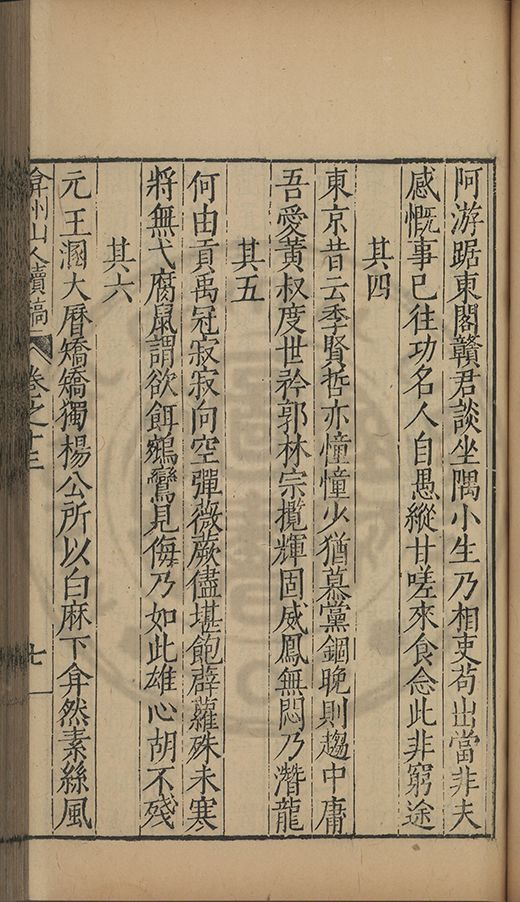 阿游踞東閣贛君談坐隅小生乃相吏苟出當非夫
感慨事已往功名人自愚縱甘嗟來食念此非窮途
其四
東京昔云季賢哲亦憧憧少猶慕黨錮晚則趨中庸
吾愛黃叔度世矜郭林宗攬輝固威鳳無悶乃潛龍
其五
何由貢禹冠寂寂向空彈薇蕨儘堪飽薜蘿殊未寒
將無弋腐鼠謂欲餌鵷鸞見侮乃如此雄心胡不殘
其六
元王溷大曆矯矯獨楊公所以白麻下弇然素絲風
弇州山人續稿 卷之十三 七